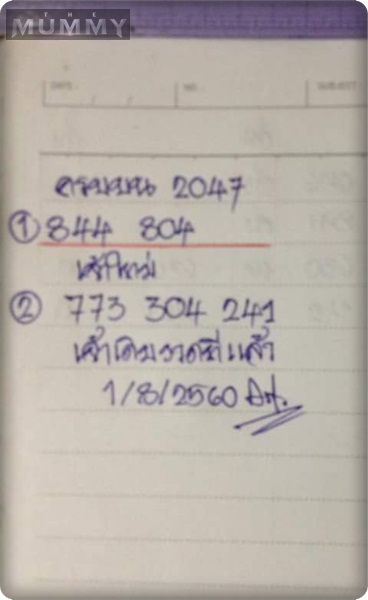 THE
MUMMY
DATE
NO.
SUBJECT
2047
① 844 804
เจ้าใหม่
② 773 304 241
เจ้าเดิมงวดที่แล้ว
1/8/2560